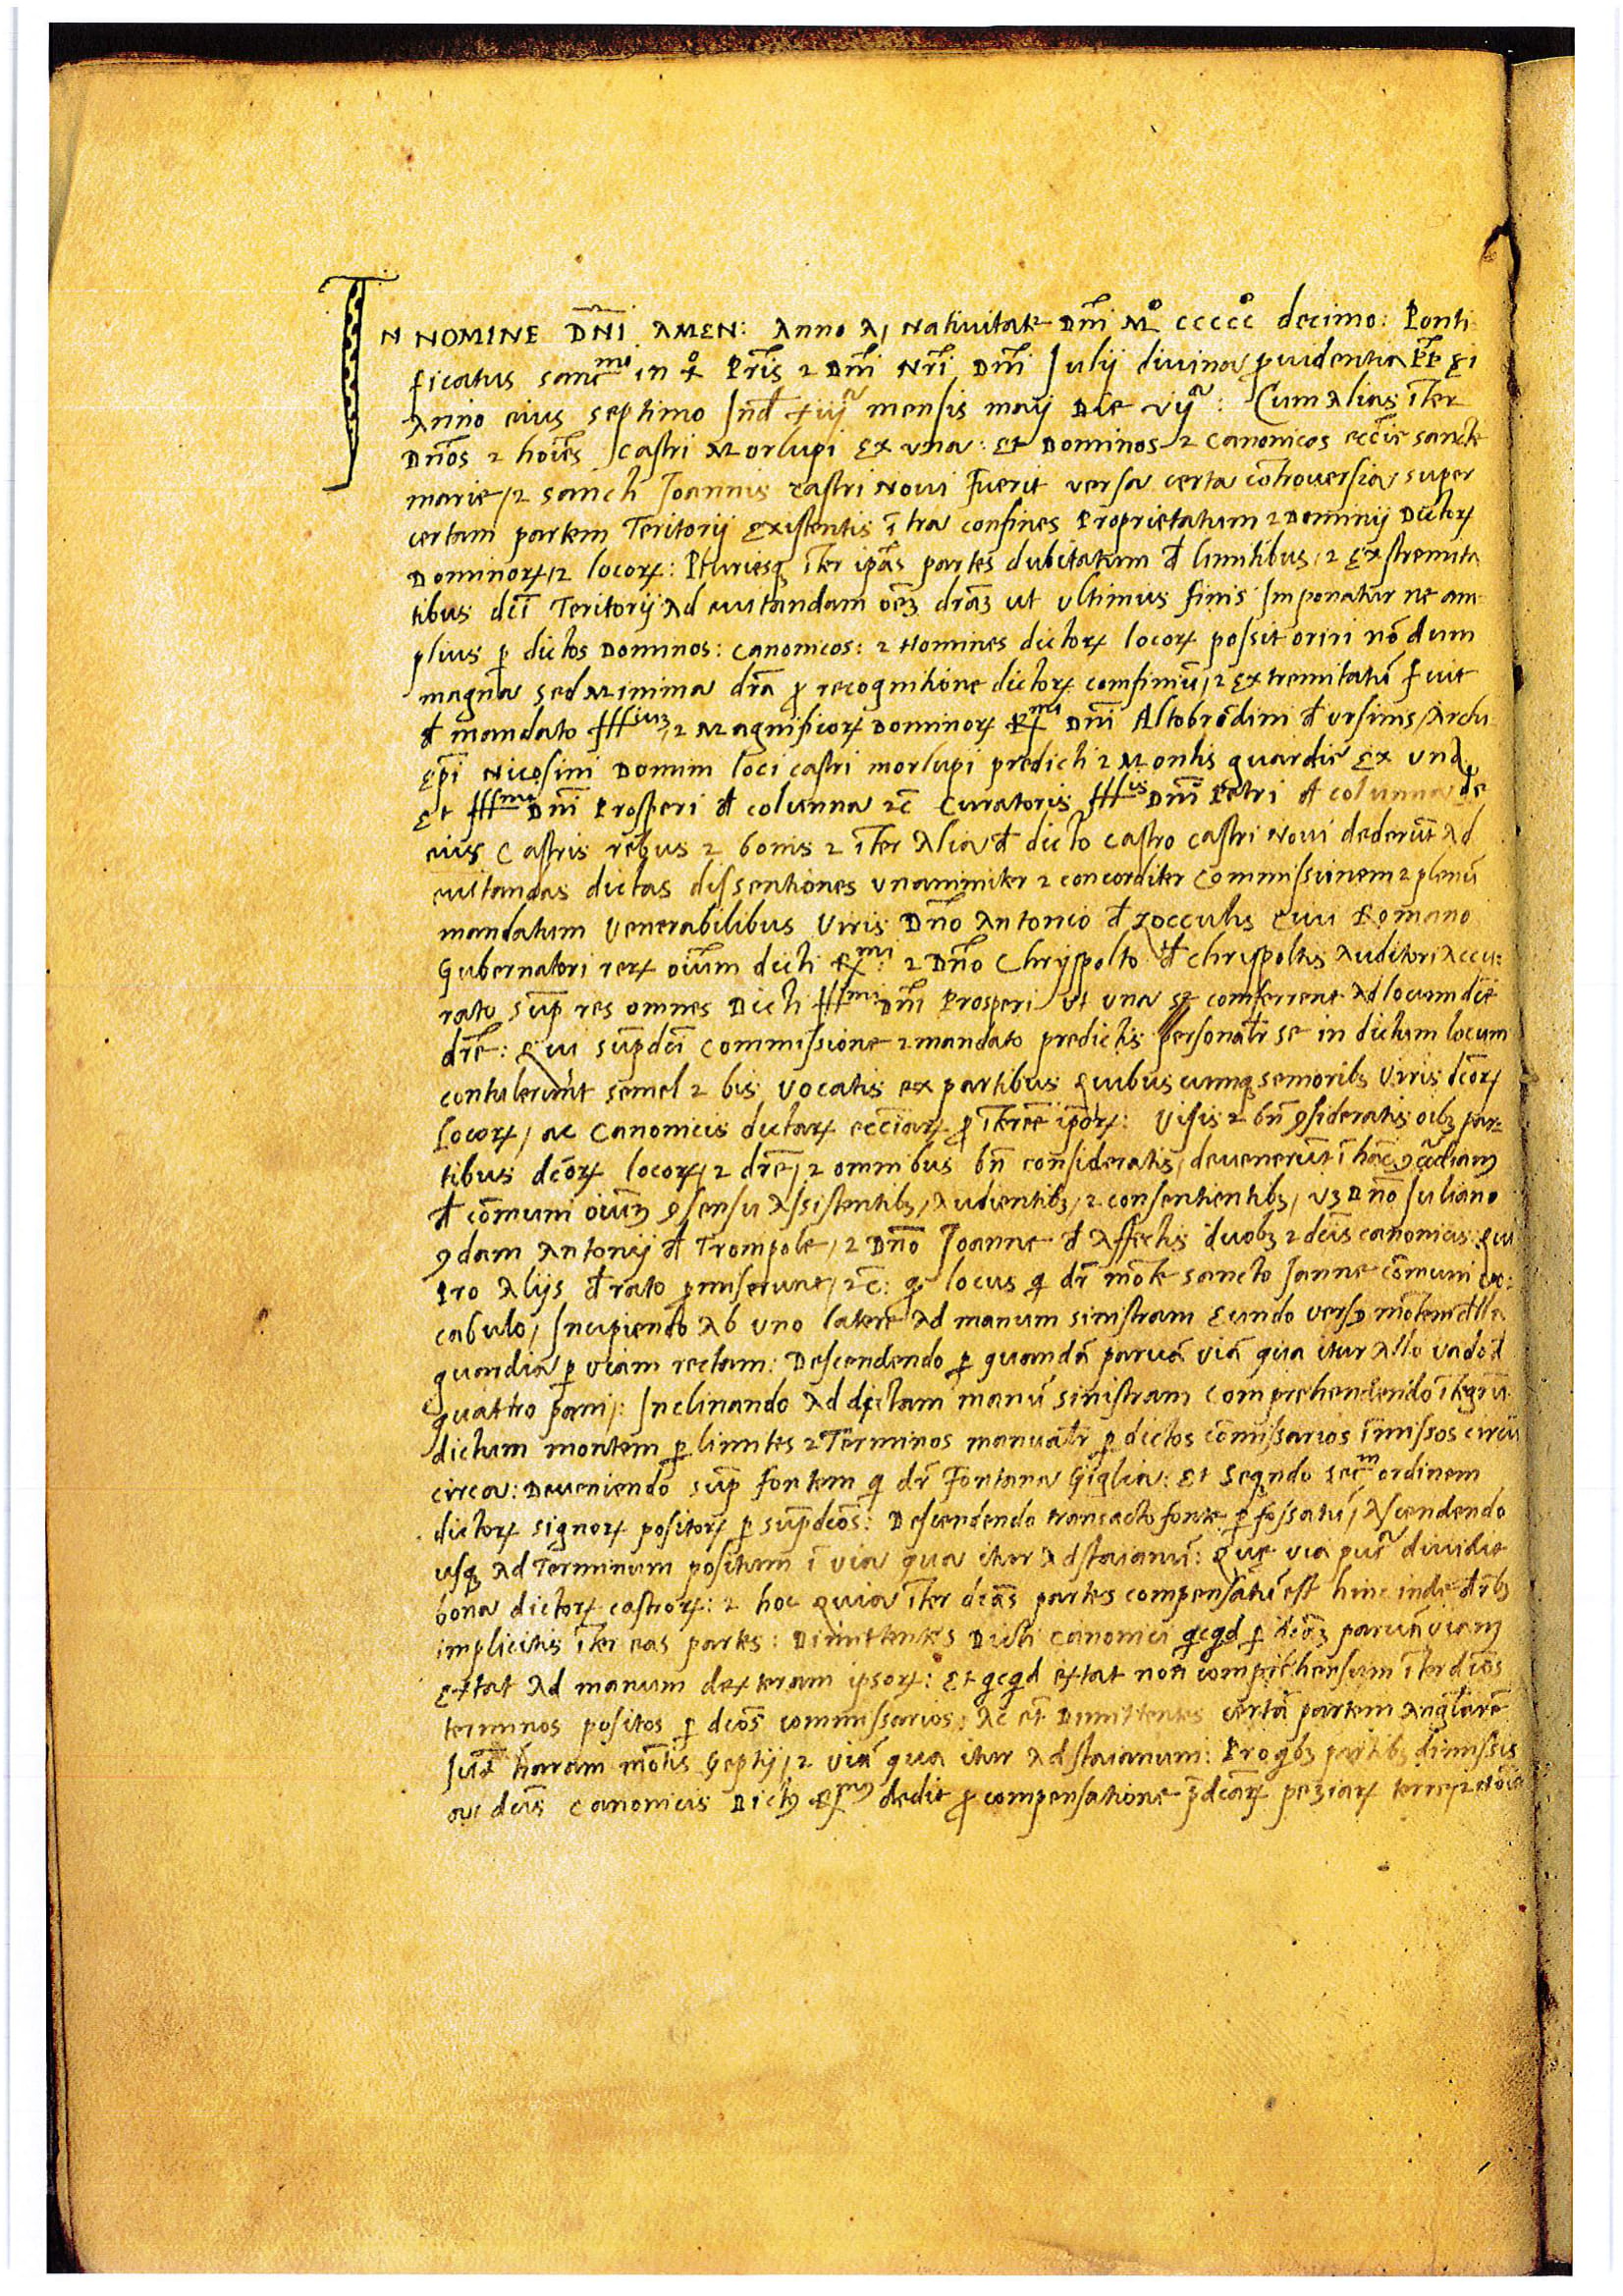 IN NOMINE DñI AMEN: Anno A, Nativitate Dñi Mº CCCCCº decimo: Ponti
ficatus sancmi in xº Pris ⁊ Dñi Nri Dñi Julij divina ꝓvidentia PP ii
Anno eius septimo Ind xiijª mensis maij Die vijª: Cum Alias īter
Dños ⁊ hoīes castri Morlupi Ex una: Et Dominos ⁊ canonicos eccīe sancte
marie, ⁊ sancti Joannis castri Novi fuerit versa certa cōtroversia super
certam partem Teritorij Existentis ītra confines Proprietatum ⁊ Dominij Dictoꝝ
Dominoꝝ, ⁊ locoꝝ: Pluriesqꝫ īter ipās partes dubitatum đ limitibus, ⁊ Exstremita
tibus dcī Teritorij Ad evitandam oēꝫ drāꝫ ut ultimus finis Imponatur ne am
plius ꝑ dictos Dominos: canonicos: ⁊ Homines dictoꝝ locoꝝ possit oriri nō dum
magna sed Minima drā ꝓ recognitione dictoꝝ confiniū, ⁊ extremitatū fuit
đ mandato Illsiuꝫ ⁊ Magnificoꝝ Dominoꝝ Rmi Dñi Altobrādini đ Ursinis, Archi
Epī Nicosini Domini loci castri morlupi predicti ⁊ Montis guardie Ex una
Et Illmi Dñi Prosperi đ columna ⁊c̄ Curatoris Illis Dñi Petri đ columna de
eius Castris rebus ⁊ bonis ⁊ īter Alia đ dicto castro castri Novi dederūt Ad
evitandas dictas dissentiones unanimiter ⁊ concorditer Commissionem ⁊ plenū
mandatum Venerabilibus Viris Dño Antonio đ zocculis civi Romano
Gubernatori reꝝ oīum dicti Rmi: ⁊ Dño Chryspolto đ chrispoltis Auditori Accu:
rato sup̄ res omnes Dicti Illmi Dñi Prosperi ut una se comferrent Ad locum diē
drē: Qui sup̄dcī commissione ⁊ mandato predictis personalr se in dictum locum
contulerunt semel ⁊ bis vocatis ex partibus quibuscumqꝫ senioribꝫ Viris dcōꝝ
locoꝝ, ac Canonicis dictaꝝ ecclīaꝝ ꝓ īterēē ipōꝝ: Visis ⁊ bn̄ ꝯsideratis oībꝫ par-
tibus dcōꝝ locoꝝ, ⁊ drē, ⁊ omnibus bn̄ consideratis, devenerūt ī hāc ꝯcordiam
đ cōmuni oīum ꝯsensu Assistentibꝫ, Audientibꝫ, ⁊ consentientibꝫ, vꝫ Dño Juliano
ꝯdam Antonij đ Trompole, ⁊ Dño Joanne đ Affectis duobꝫ ⁊ dcīs canonicis: qui
Pro Alijs đ rato ꝓmiserunt, ⁊c̄: qꝫ locus qi dr̄ mōte sancto Janne cōmuni vo:
cabulo, Incipiendo Ab uno latere Ad manum sinistram Eundo versꝯ mōtem della
guardia ꝑ viam rectam: Descendendo ꝑ quamdā parvā viā qua itur Allo vado đ
quattro pani: Inclinando Ad dictam manū sinistram comprehendendo ītegrū
dictum montem ꝑ limites ⁊ Terminos manualr ꝑ dictos cōmissarios īmissos circū
circa: Deveniendo sup̄ fontem qi dr̄ Fontana Giglia: Et seqndo secm ordinem
dictoꝝ signoꝝ positoꝝ ꝑ sup̄dcōs: Descendendo transacto fonte ꝑ fossatū, Ascendendo
usqꝫ Ad Terminum positum ī via qua itur Ad staianū: que via dividit
bona dictoꝝ castroꝝ: ⁊ hoc quia īter dcās partes compensātū est hinc inde
implicitis īter eas partes: Dimittentes Dicti canonici qcqd ꝑ dcāꝫ parvā viam
extat Ad manum dexteram ipsoꝝ: Et qcqd extat non comprehensum īter dcōs
terminos positos ꝑ dcōs commissarios, Ac et Dimittentes certā partem Anglarē
haram mōtis Geptij, ⁊ viā qua itur Ad staianum: Pro qibꝫ partibꝫ dimissis
a dcīs canonicis Dictꝯ Rmꝯ dedit ꝓ compensatione p̄dcāꝝ peziaꝝ terre